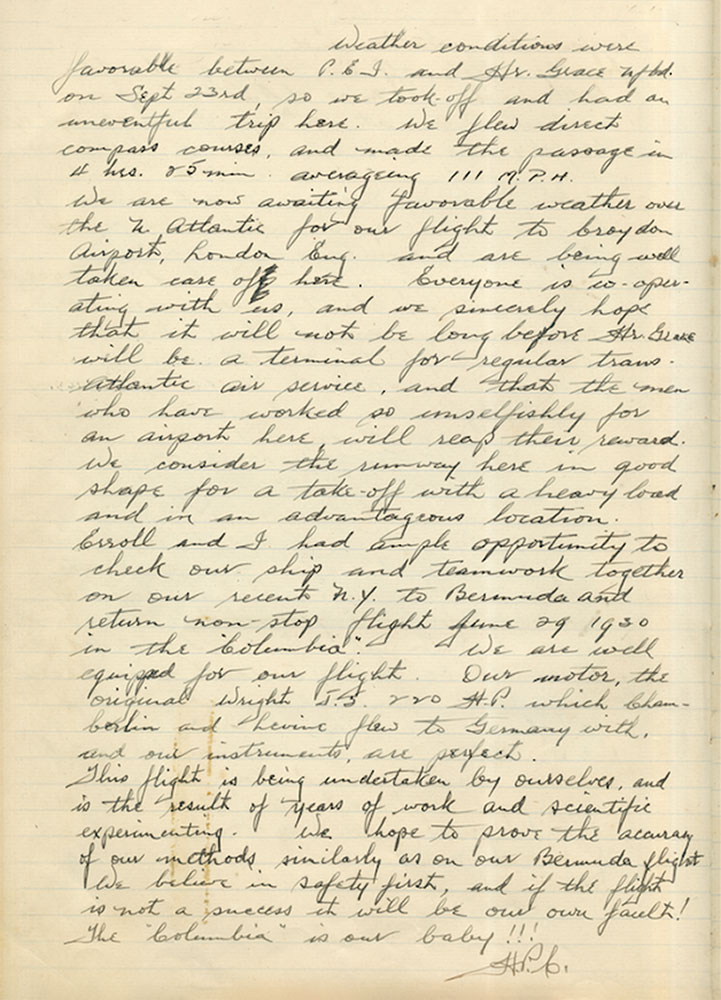 Weather conditions were
favorable between P.E.I. and Hr. Grace Nfld.
on Sept 23rd, so we took-off and had an
uneventful trip here. We flew direct
compass courses, and made the passage in
4 hrs. 25 min. averageing 111 M.P.H.
We are now awaiting favorable weather over
the N. Atlantic for our flight to Croydon
Airport, London Eng. and are being well
taken care of here. Everyone is co-oper-
ating with us, and we sincerely hope
that it will not be long before Hr. Grace
will be a terminal for regular trans-
atlantic air service, and that the men
who have worked so unselfishly for
an airport here, will reap their reward.
We consider the runway here in good
shape for a take-off with a heavy load
and in an advantageous location.
Erroll and I had ample opportunity to
check our ship and teamwork together
on our recent N.Y. to Bermuda and
return non-stop flight June 29 1930
in the "Columbia". We are well
equipped for our flight. Our motor, the
original Wright J.5. 220 H.P. which Cham-
berlin and Levine flew to Germany with,
and our instruments, are perfect.
This flight is being undertaken by ourselves, and
is the result of years of work and scientific
experimenting. We hope to prove the accuracy
of our methods similarly as on our Bermuda flight
We believe in safety first, and if the flight
is not a success it will be our own fault!
The "Columbia" is our baby!!!
H.P.C.